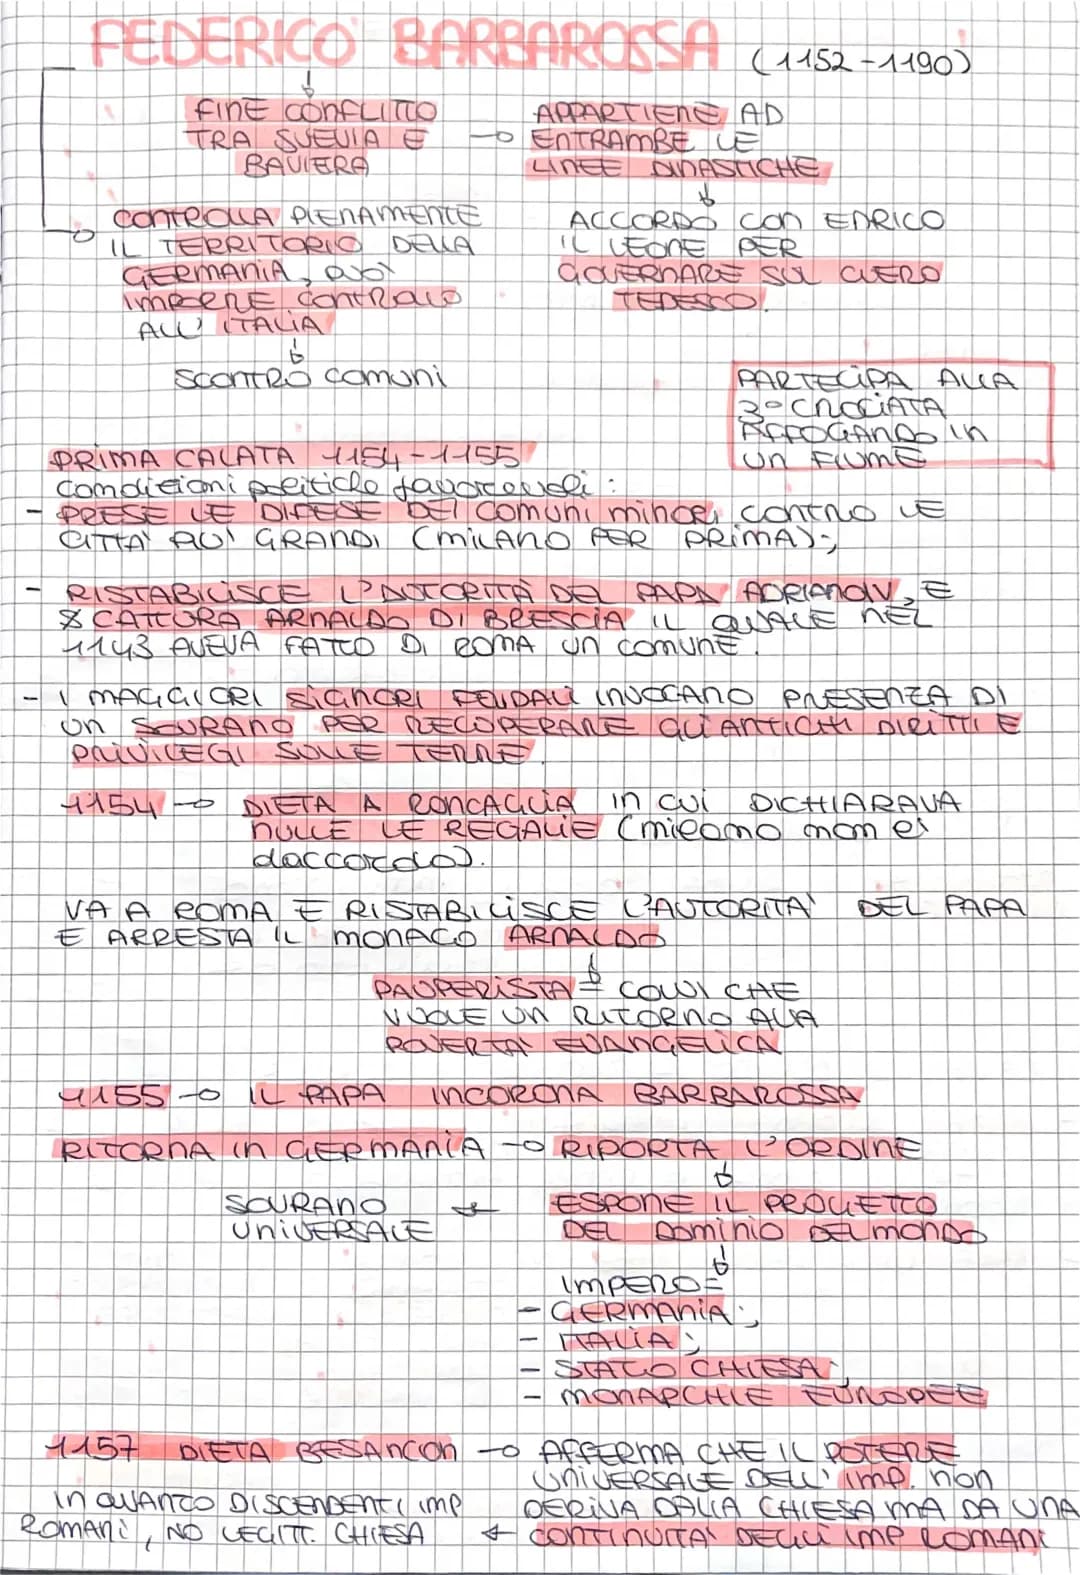 FEDERICO BARBAROSSA (1152-1190)
FINE CONFLITTO
TRA SVEVIA E
BAVIERA
APPARTIENE AD
ENTRAMBE LE
LINEE DINASTICHE
CONTROLLA PIENAMENTE
IL TERRITORIO DELLA
GERMANIA, VUOI
IMPORRE CONTROLLO
ALL' ITALIA
SCONTRO COMUNI
ACCORDO CON ENRICO
IL LEONE PER
GOVERNARE SUL CLERO
TEDESCO.
PARTECIPA ALLA
3° CROCIATA
AFFOGANDO IN
UN FIUME
PRIMA CALATA 1154-1155
Condizioni politiche favorevoli:
- PRESE LE DIFESE DEI COMUNI MINORI CONTRO LE
CITTA' PIU' GRANDI (MILANO PER PRIMA);
- RISTABILISCE L'AUTORITÀ DEL PAPA ADRIANO IV, E
CATTURA ARNALDO DI BRESCIA IL QUALE NEL
1143 AVEVA FATTO DI ROMA UN COMUNE.
- I MAGGIORI SIGNORI FEUDALI INVOCANO PRESENZA DI
UN SOVRANO PER RECOPERARE GLI ANTICHI DIRITTI E
PRIVILEGI SULLE TERRE.
1154 → DIETA A RONCAGLIA IN CUI DICHIARAVA
NULLE LE REGALIE (milano non è
daccordo).
VA A ROMA E RISTABILISCE L'AUTORITA' DEL PAPA
E ARRESTA IL MONACO ARNALDO
PAUPERISTA = COLUI CHE
VUOLE UN RITORNO ALLA
POVERTA' EVANGELICA
1155 → IL PAPA INCORONA BARBAROSSA
RITORNA IN GERMANIA → RIPORTA L'ORDINE
SOVRANO
UNIVERSALE
← ESPONE IL PROGETTO
DEL DOMINIO DEL MONDO
IMPERO=
- GERMANIA;
- ITALIA;
- STATO CHIESA;
- MONARCHIE EUROPEE
1157 DIETA BESANCON → AFFERMA CHE IL POTERE
UNIVERSALE DELL' IMP. NON
DERIVA DALLA CHIESA MA DA UNA
← CONTINUITA' DEGLI IMP ROMANI
IN QUANTO DISCENDENTI IMP
ROMANI, NO LEGITT. CHIESA